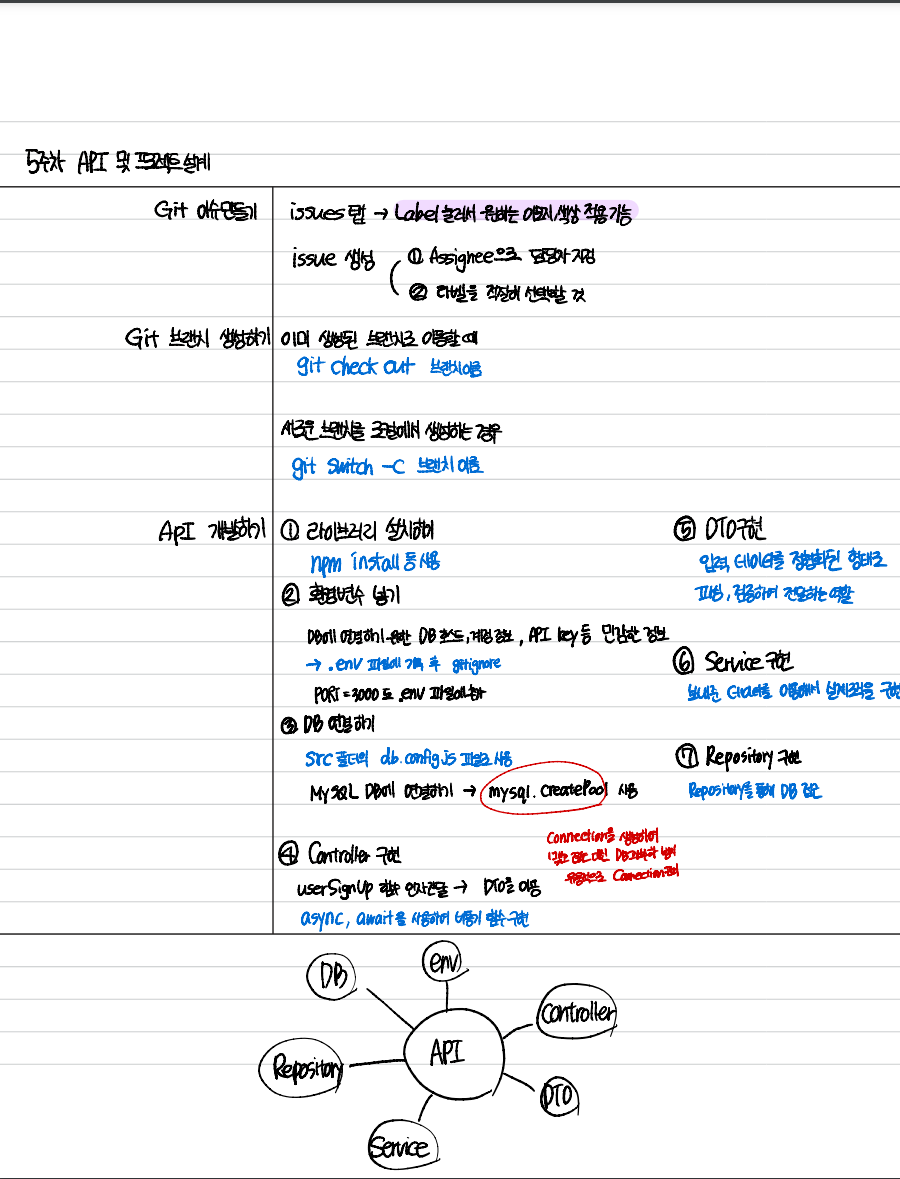 5주차 API 및 프로젝트 설계
Git 이슈만들기
issues탭 → Label 눌러서 원하는 이미지 색상 적용가능
issue 생성
① Assignee으로 담당자 지정
② 라벨을 적절히 선택할 것
Git 브랜치 생성하기
이미 생성된 브랜치로 이동할 때
git check out 브랜치이름
새로운 브랜치를 로컬에서 생성하는 경우
git switch -C 브랜치이름
API 개발하기
① 라이브러리 설치하기
npm install 등 사용
② 환경변수 넣기
DB에 연결하기 위한 DB 호스트, 계정 정보, API key 등 민감한 정보
→ .env 파일에 기록 후 gitignore
PORT = 3000 도 .env 파일에
③ DB 연결하기
src 폴더의 db.config.js 파일로 사용
MySQL DB에 연결하기 → mysql.createPool 사용
Connection을 생성하여
DB
Connection
④ Controller 구현
userSignUp 함수 인자전달 → DTO를 이용
async, await을 사용하여 비동기 함수 구현
⑤ DTO구현
입력 데이터를 정형화된 형태로
파싱, 검증하여 전달하는 역할
⑥ Service 구현
보내준 데이터를 이용해서 실제로직을 구현
⑦ Repository 구현
Repository를 통해 DB 접근
DB
env
Controller
API
Repository
DTO
Service